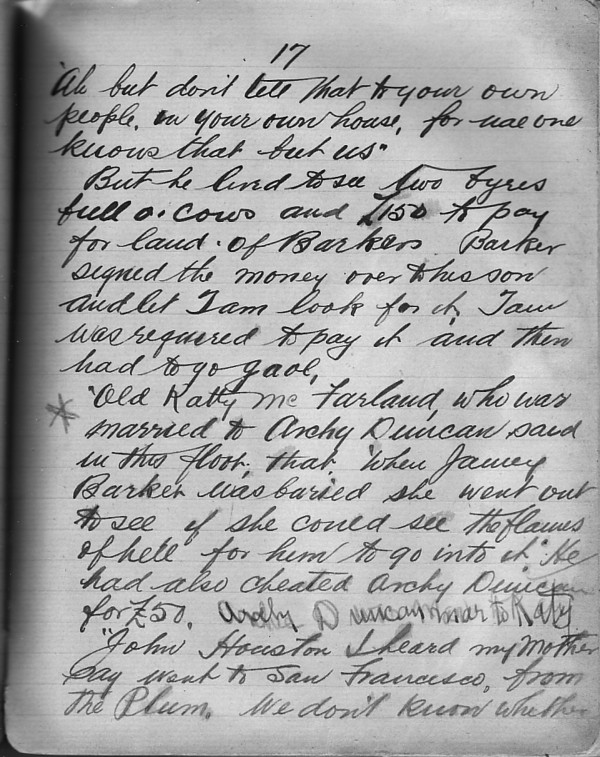 17
"Ah but don't tell that to your own
people, in your own house, for nae one
knows that but us"
But he lived to see two byres
full o' cows and £150 to pay
for land. of Barkers Barker
signed the money over to his son
and let Tam look for it, Tam
was required to pay it and then
had to go gaol,
* "Old Katty Mc Farland, who was
married to Archy Duncan, said
in this floor, that, when Jamey
Barker was buried she went out
to see if she could see the flames
of hell for him to go into it" He
had also cheated Archy Duncan
for £50. Archy Duncan mar to Katy
"John Houston I heard my Mother
say went to San Francisco, from
the Plum. We don't know whether